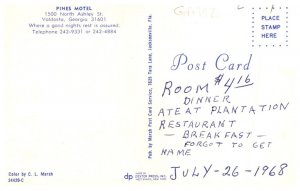 PINES MOTEL
1500 North Ashley St.
Valdosta, Georgia 31601
Where a good nights rest is assured.
Telephone 242-9331 or 242-4884
GA702
PLACE
STAMP
HERE
Post Card
ROOM #416
DINNER
ATE AT PLANTATION
RESTAURANT
— BREAKFAST —
FORGOT TO GET
NAME
JULY-26-1968
Pub. by Marsh Post Card Service, 1625 Talbot Lane, Jacksonville, Fla.
Color by C. L. Marsh
dp
DEXTER PRESS, INC.
WEST NYACK, NEW YORK